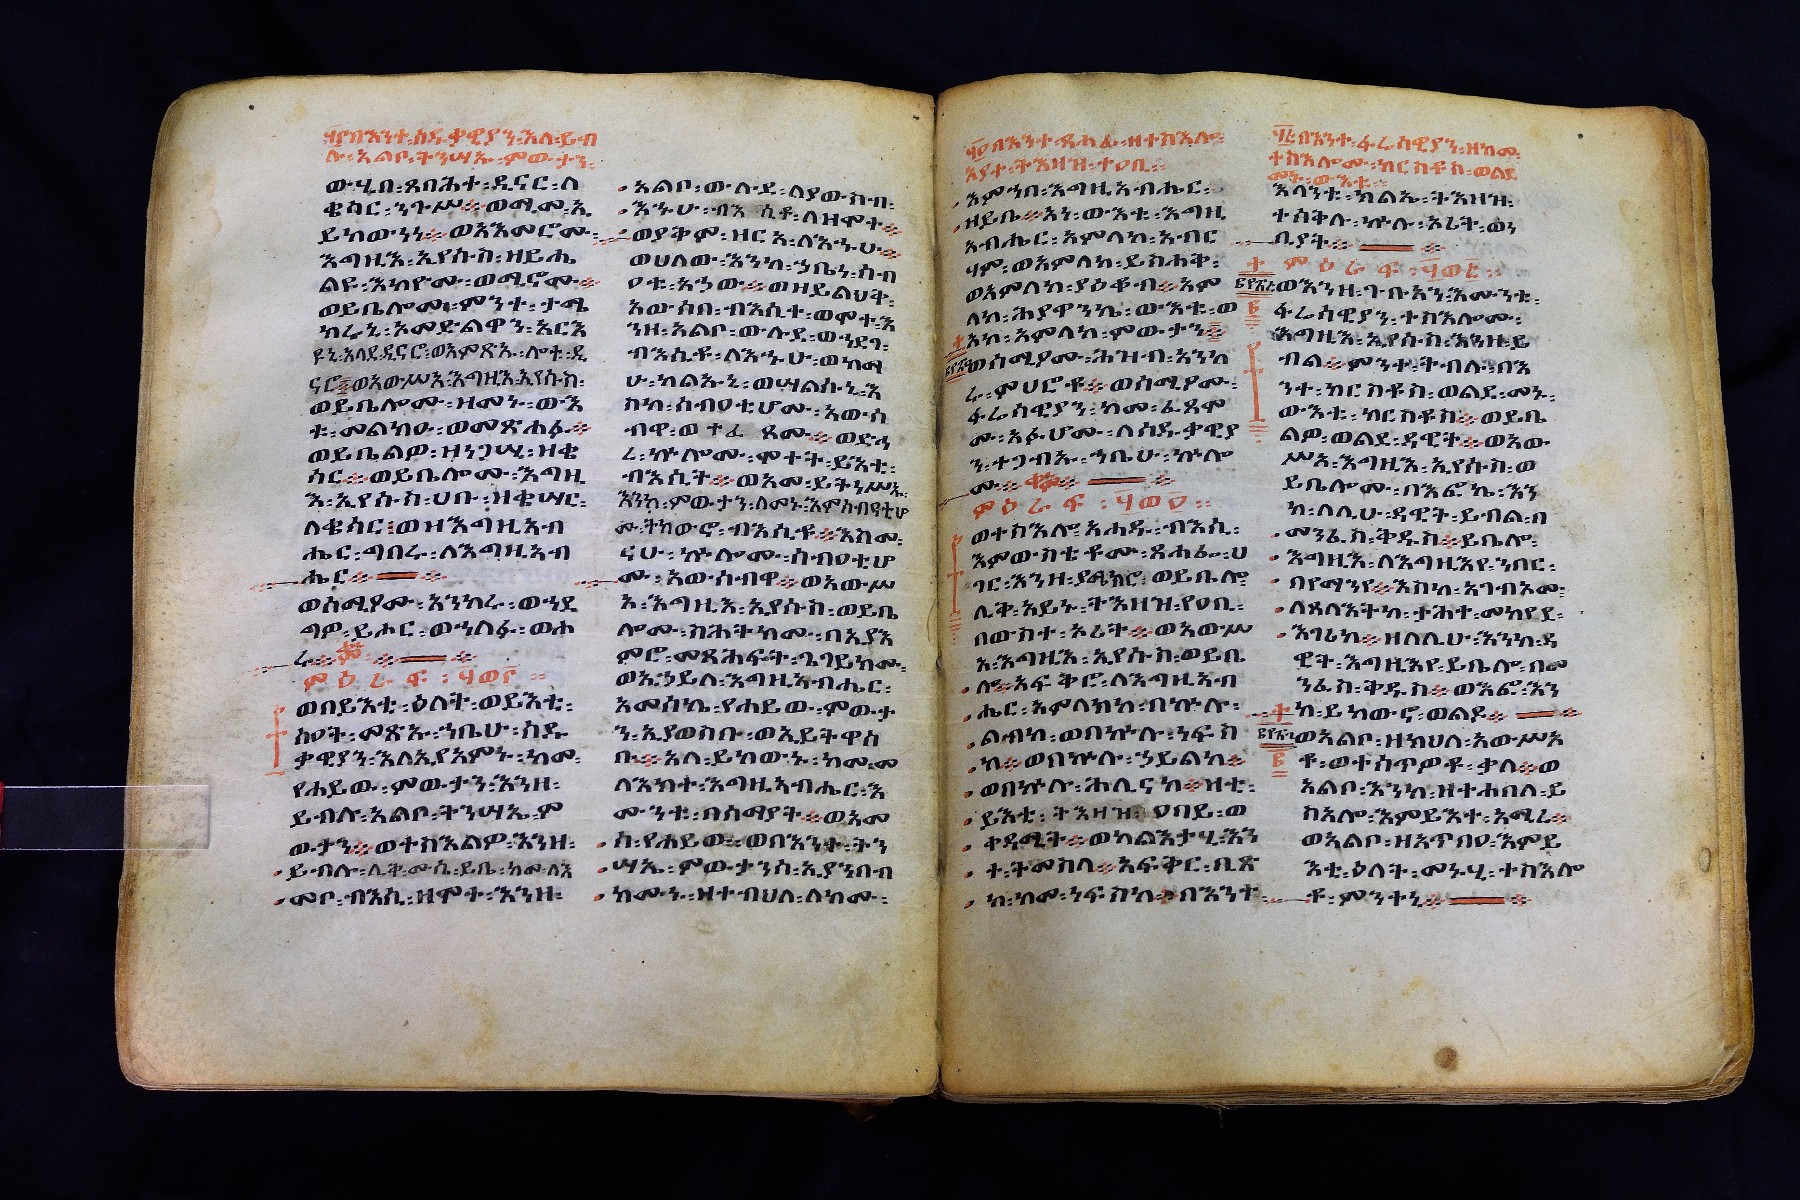 ፺፫በእንተ፡ሰዱቃዊያን፡እለ፡ይብ
ሉ፡አልቦ፡ትንሣኤ፡ምውታን፡
ውሂበ፡ጸባሕተ፡ዲናር፡ለ
ቄሳር፡ንጉሥ፨ወሚመ፡ኢ
ይከውነነ፨ወአእመሮሙ፡
እግዚእ፡ኢየሱስ፡ዘይሔ
ልዩ፡እከዮሙ፡ወሚሮሙ፨
ወይቤሎሙ፡ምንተ፡ታሜ
ክሩኒ፡አመድልዋን፡አርእ
ዩኒ፡አላደ፡ዲናሮ፡ወአምጽኡ፡ሎቱ፡ዲ
ናሮ፨ወአውሥአ፡እግዚእ፡ኢየሱስ፡
ወይቤሎሙ፡ዘመኑ፡ውእ
ቱ፡መልክዑ፡ወመጽሐፉ፨
ወይቤልዎ፡ዘነጋሢ፡ዘቄ
ሳር፨ወይቤሎሙ፡እግዚ
እ፡ኢየሱስ፡ሀቡ፡ዘቄሣር፡
ለቄሳር፡ወዘእግዚአብ
ሔር፡ግበሩ፡ለእግዚአብ
ሔር፨
ወሰሚዖሙ፡አንከሩ፡ወኀደ
ግዎ፡ይሖር፡ወኀለፉ፡ወሖ
ሩ፨
ምዕራፍ፡፺ወ፫፡
ወበይእቲ፡ዕለት፡ወይእቲ፡
ሰዐት፡መጽኡ፡ኀቤሁ፡ሰዱ
ቃዊያን፡እለ፡ኢያአምኑ፡ከመ፡
የሐይው፡ምውታን፡እንዘ፡
ይብሉ፡አልቦ፡ትንሣኤ፡ም
ውታን፨ወተስእልዎ፡እንዘ፡
ይብሉ፡ሊቅ፡ሙሴ፡ይቤ፡ከመ፡ለእ
መቦ፡ብእሲ፡ዘሞተ፡እንዘ፡
አልቦ፡ውሉደ፡ለያውስብ፡
እኁሁ፡ብእሲቶ፡ለዝሞተ፨
ወያቅም፡ዘርአ፡ለእኁሁ፨
ወሀለው፡እንከ፡ኃቤነ፡ሰብ
ዐቱ፡አኃው፨ወዘይልህቅ፡
አውሰበ፡ብእሲተ፡ወሞተ፡እ
ንዘ፡አልቦ፡ውሉደ፡ወኀደገ፡
ብእሲቶ፡ለእኁሁ፡ወከማ
ሁ፡ካልኡኒ፡ወሣልሱኒ፡እ
ስከ፡ሰብዐቲሆሙ፡አውሰ
ብዋ፡ወተፈጸሙ፨ወድኅ
ረ፡ኵሎሙ፡ሞተት፡ይእቲ፡
ብእሲት፨ወአመ፡ይትነሥኡ፡
እንከ፡ምውታን፡ለመኑ፡እምሰብዐቲሆ
ሙ፡ትከውኖ፡ብእሲቶ፨እስመ፡
ናሁ፡ኵሎሙ፡ሰብዐቲሆ
ሙ፡አውሰብዋ፨ወአውሥ
አ፡እግዚእ፡ኢያሱስ፡ወይቤ
ሎሙ፡ስሕትክሙ፡በኢያእ
ምሮ፡መጻሕፍት፡ጌገይክሙ፡
ወእኃይለ፡እግዚአብሔር፡
አመሰኬ፡የሐይው፡ምውታ
ን፡ኢያወስቡ፡ወኢይትዋሰ
ቡ፨አለ፡ይከውኑ፡ከመ፡መ
ላእክተ፡እግዚአብሔር፡እ
ሙንቱ፡በሰማያት፨ወአመ
ሰ፡የሐይው፡ወበእንተ፡ትን
ሣኤ፡ምውታንሰ፡ኢያንበብ
ክሙኑ፡ዘተብህለ፡ለክሙ፡
፺፬በእንተ፡ጸሐፊ፡ዘተስእሎ፡
አያተ፡ትእዘዝ፡ተዐቢ፡
እምኀበ፡እግዚአብሔር፡
ዘይቤ፨አነ፡ውእቱ፡እግዚ
አብሔር፡አምላከ፡አብር
ሃም፡ወአምላከ፡ይስሐቅ፡
ወአምላከ፡ያዕቆብ፨አም
ላከ፡ሕያዋንኬ፡ውእቱ፡ወ
አኮ፡አምላከ፡ምውታን፨
ወሰሚዖሙ፡ሕዝብ፡አንከ
ሩ፡ምህሮቶ፨ወሰሚዖሙ፡
ፋሬሳዊያን፡ከመ፡ፈጸሞ
ሙ፡አፉሆሙ፡ለሰዱቃዊያ
ን፡ተጋብኡ፡ኀቤሁ፡ኵሎ
ሙ፨
ምዕራፍ፡፺ወ፬፡
ወተስእሎ፡አሐዱ፡ብእሲ፡
እምውስቴቶሙ፡ጸሐፌ፡ሀ
ገር፡እንዘ፡ያሜክሮ፡ወይቤሎ
ሊቅ፡አይኑ፡ትእዛዝ፡የዐቢ፡
በውስተ፡ኦሪት፨ወአውሥ
አ፡እግዚእ፡ኢየሱስ፡ወይቤ
ሎ፨አፍቅሮ፡ለእግዚአብ
ሔር፡አምላክከ፡በኵሉ፡
ልብከ፡ወበኵሉ፡ነፍስ
ከ፨ወበኵሉ፡ኃይልከ፨
ወበኵሉ፡ሕሊናከ፨ዛቲ፡
ይእቲ፡ትእዛዝ፡ዐባይ፡ወ
ቀዳሚት፨ወካልእታሂ፡እን
ተ፡ትመስላ፨አፍቅር፡ቢጽ
ከ፡ከመ፡ነፍስከ፨በእንተ፡
፺፭በእንተ፡ፋሬሳዊያን፡ዘከመ፡
ተስእሎሙ፡ክርስቶስ፡ወልደ
መኑ፡ውእቱ፡
እላንቱ፡ክልኤ፡ትእዛዝ፡
ተሰቅሉ፡ኵሉ፡ኦሪት፡ወነ
ቢያት፨
ምዕራፍ፡፺ወ፭፡
ወእንዘ፡ጉቡአን፡እሙንቱ፡
ፋሬሳዊያን፡ተስእሎሙ፡
እግዚእ፡ኢየሱስ፡እንዘ፡ይ
ብል፨ምንተ፡ትብሉ፡በእ
ንተ፡ክርስቶስ፡ወልደ፡መኑ፡
ውእቱ፡ክርስቶስ፨ወይቤ
ልዎ፡ወልደ፡ዳዊት፨ወአው
ሥአ፡እግዚእ፡ኢየሱስ፡ወ
ይቤሎሙ፡በእፎኬ፡እን
ከ፡ለሊሁ፡ዳዊት፡ይብል፡በ
መንፈስ፡ቅዱስ፨ይቤሎ፡
እግዚእ፡ለእግዚእየ፡ንበር፡
በየማንየ፨እስከ፡አገብኦሙ፡
ለጸላእትከ፡ታሕተ፡መከየደ፡
እገሪከ፨ዘለሊሁ፡እንከ፡ዳ
ዊት፡እግዚእየ፡ይቤሎ፡በመ
ንፈስ፡ቅዱስ፨ወእፎ፡እን
ከ፡ይከውኖ፡ወልዶ፨
ወአልቦ፡ዘክህለ፡አውሥኦ
ቶ፡ወተሰጥዎቶ፡ቃለ፨ወ
አልቦ፡እንከ፡ዘተሐበለ፡ይ
ስአሎ፡እምይእተ፡አሚረ፨
ወአልቦ፡ዘአጥበዐ፡እምይ
እቲ፡ዕለት፡መኑሂ፡ተስእሎ
ቶ፡ምንተኒ፨